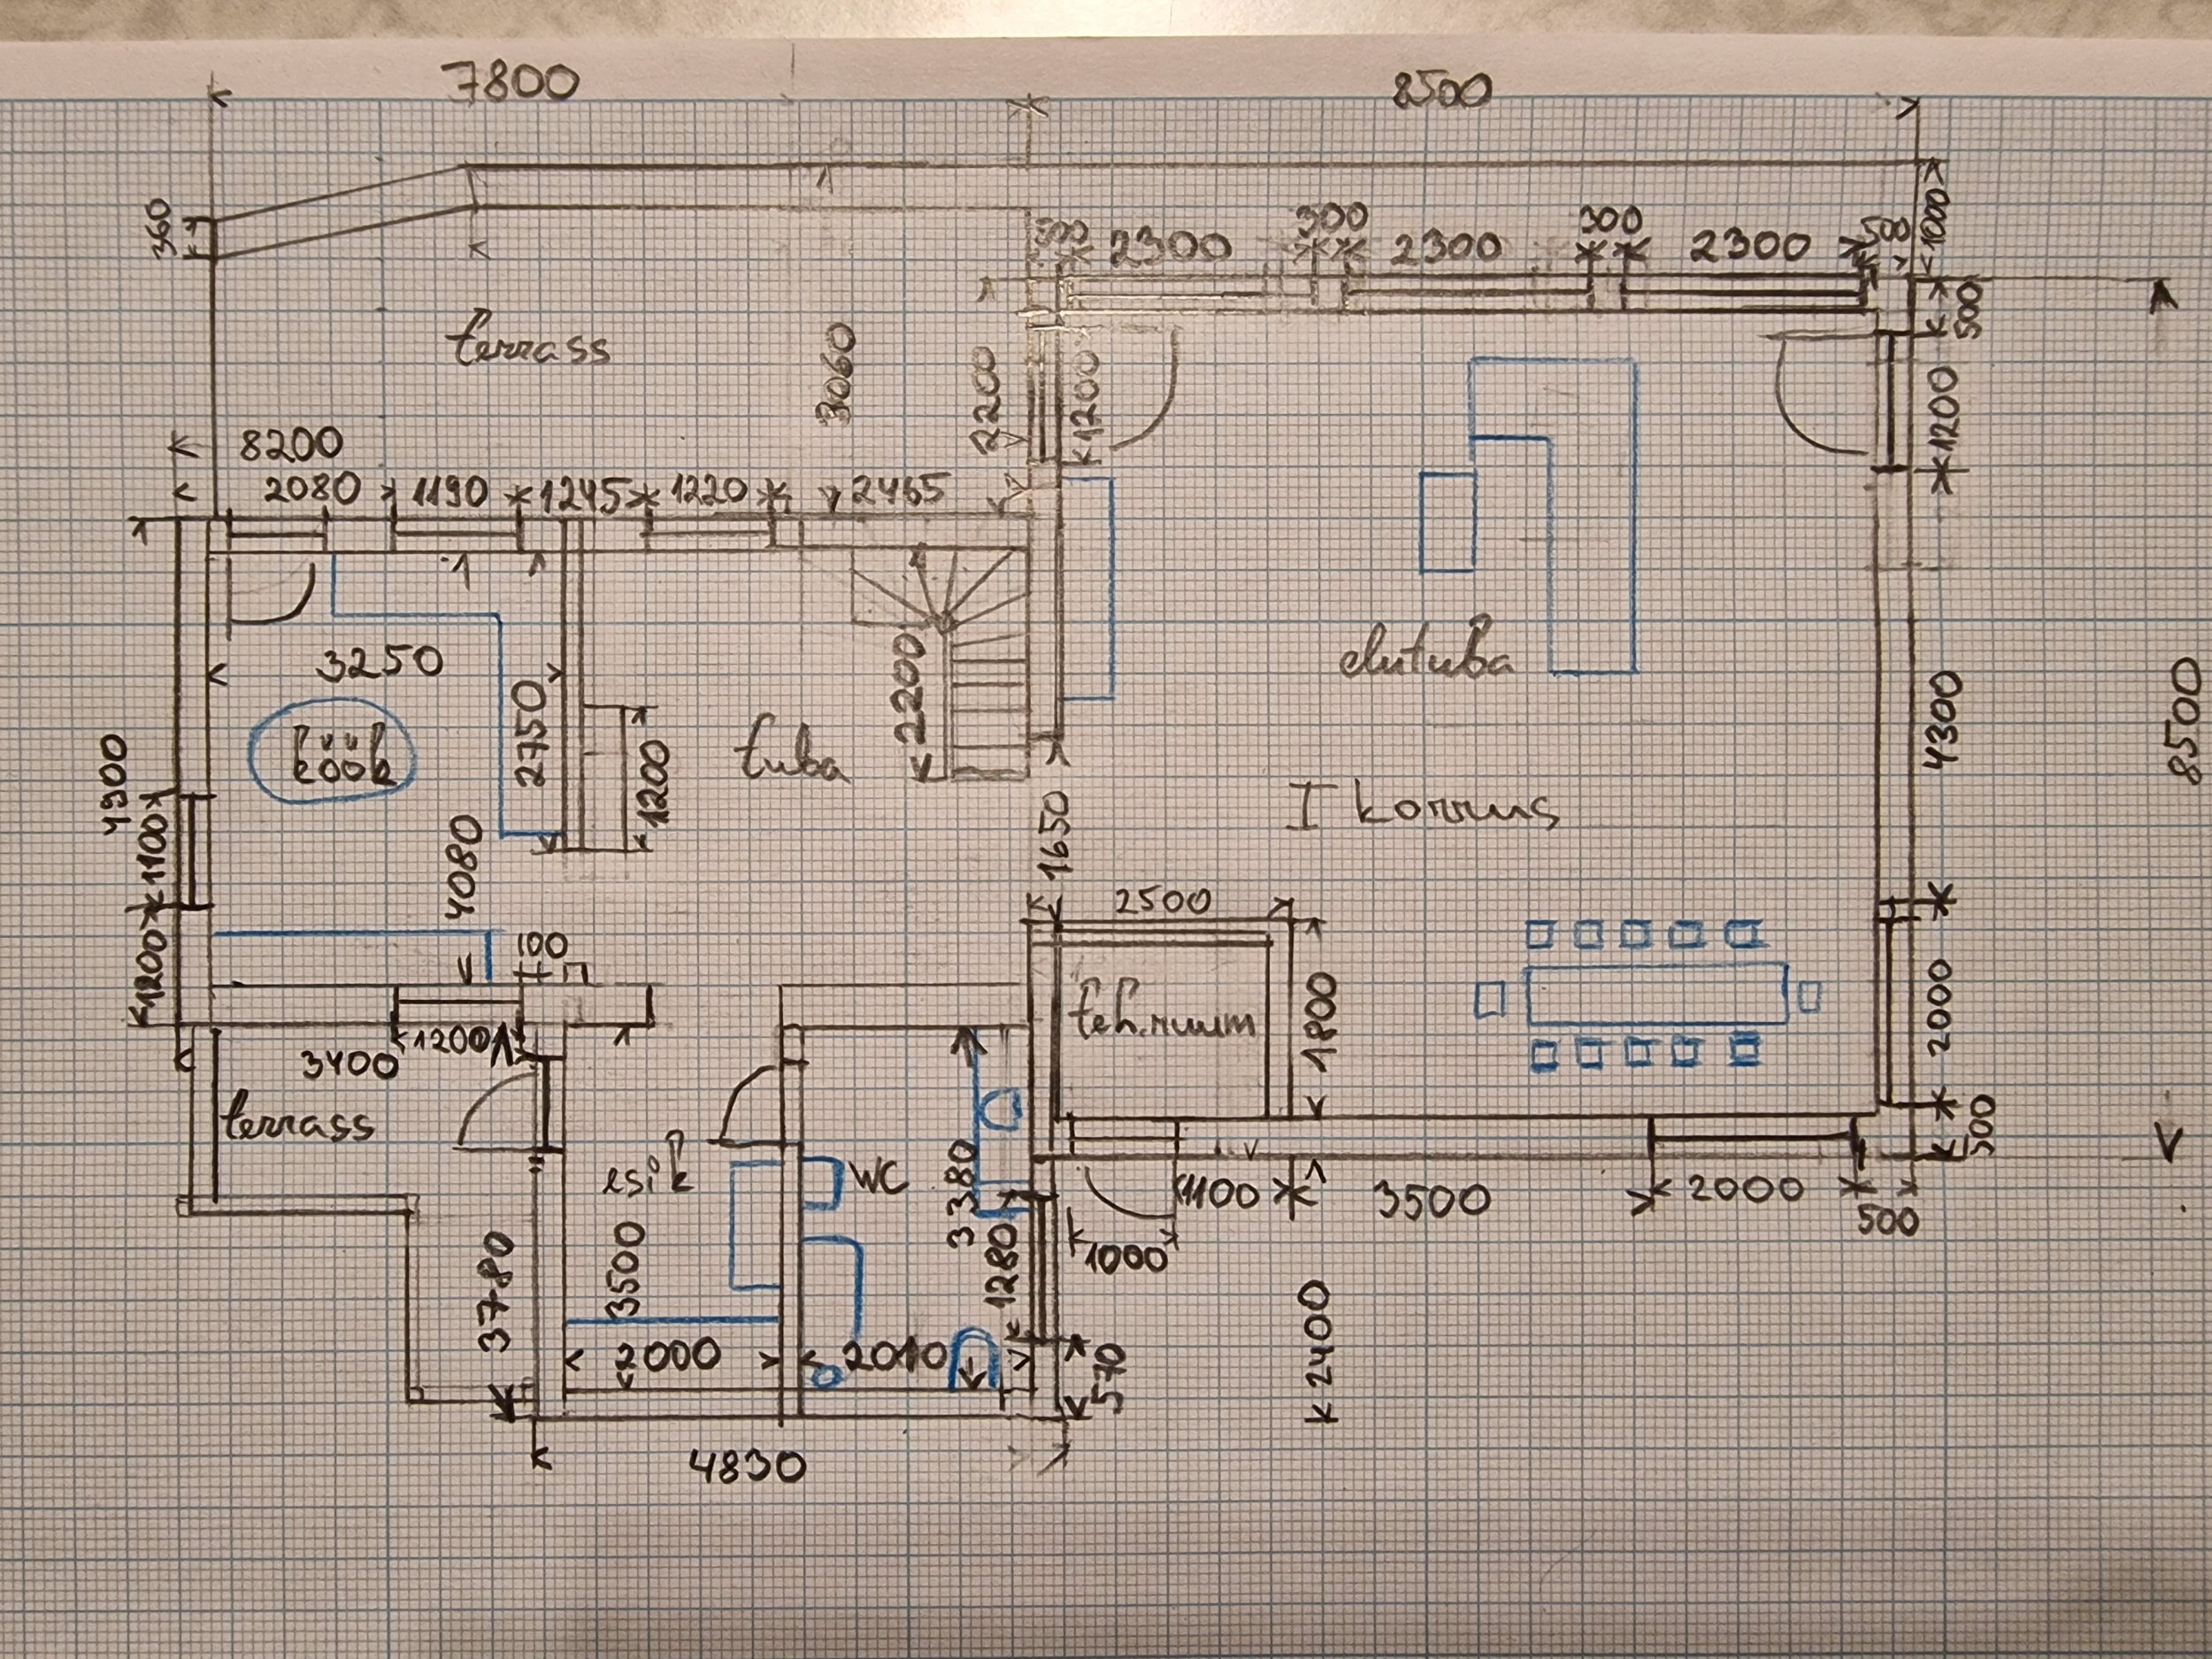 7800
8500
360
1000
300
300
500
2300
2300
2300
500
terrass
3060
2200
1200
1200
8200
2080
1190
1245
1220
2465
3250
köök
2750
1200
tuba
2200
elutuba
I korrus
4300
8500
4900
1100
1200
4080
100
1650
2500
teh.ruum
1800
2000
500
3400
1200
terrass
esik
WC
3380
1280
1100
3500
2000
500
1000
3780
3500
2000
2010
570
2400
4830